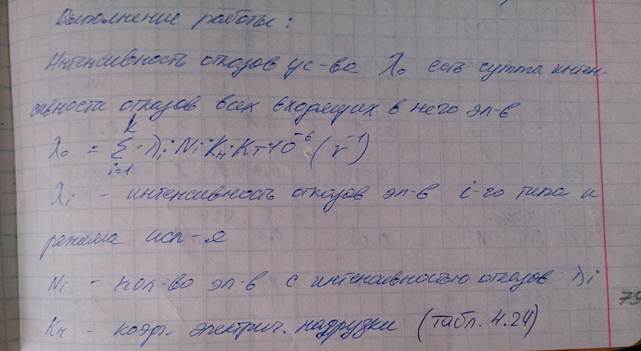 Выполнение работы:
Интенсивность отказов ус-ва λ₀ есть сумма интен-
сивности отказов всех входящих в него эл-в
λ₀ = Σ_{i=1}^{k} λi·Ni·Kн·Kт·10⁻⁶ (г⁻¹)
λi - интенсивность отказов эл-в i-го типа и
режима исп-я
Ni - кол-во эл-в с интенсивностью отказов λi
Kн - коэф. электрич. нагрузки (табл. 4.24)
79